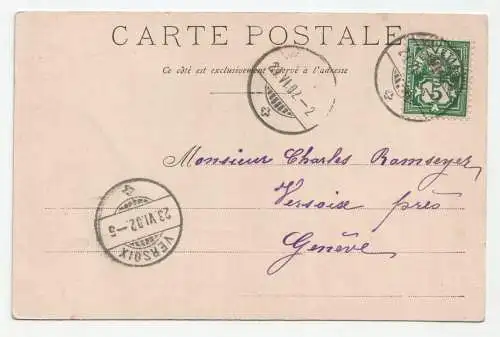 CARTE POSTALE
Ce côté est exclusivement réservé à l'adresse
23.VI.02.-2
5
Monsieur Charles Ramseyer,
Versoise près
Genève
23.VI.02.-5
VERSOIX